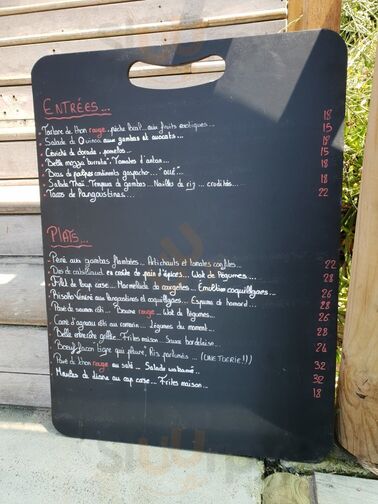 ENTRÉES...
• Tartare de thon rouge.. pêche local.. aux fruits exotiques... 18
• Salade de Quinoa aux gambas et avocats... 15
• Céviche de dorade.. pomelos... 18
• Belle mozza "burrata". Tomates d'antan... 15
• Duo de poulpes gaspacho... "olé"... 18
• Salade Thaï. Tempura de gambas... Nouilles de riz ... crudités... 18
• Tacos de langoustines.... 22
PLATS...
• Penne aux gambas flambées... Artichauts et tomates confites... 22
• Dos de cabillaud en croûte de pain d'épices... Wok de légumes.... 28
• Filet de loup Marmelade de courgettes... Emultion coquillages... 26
• Risotto Vénéré aux langoustines et coquillages... Espuma de homard... 28
• Pavé de saumon rôti... Beurre rouge... Wok de légumes. 26
• Carré d'agneau rôti au romarin... Légumes du moment... 28
• Belle entrecôte grillée.. Frites maison.. Sauce bordelaise... 26
• Boeuf façon tigre qui pleure, Riz parfumés ... (UNE TUERIE!!) 32
• Pavé de thon rouge au saté ... Salade wakamé... 32
• Moules de diane au cap corse... Frites maison... 18